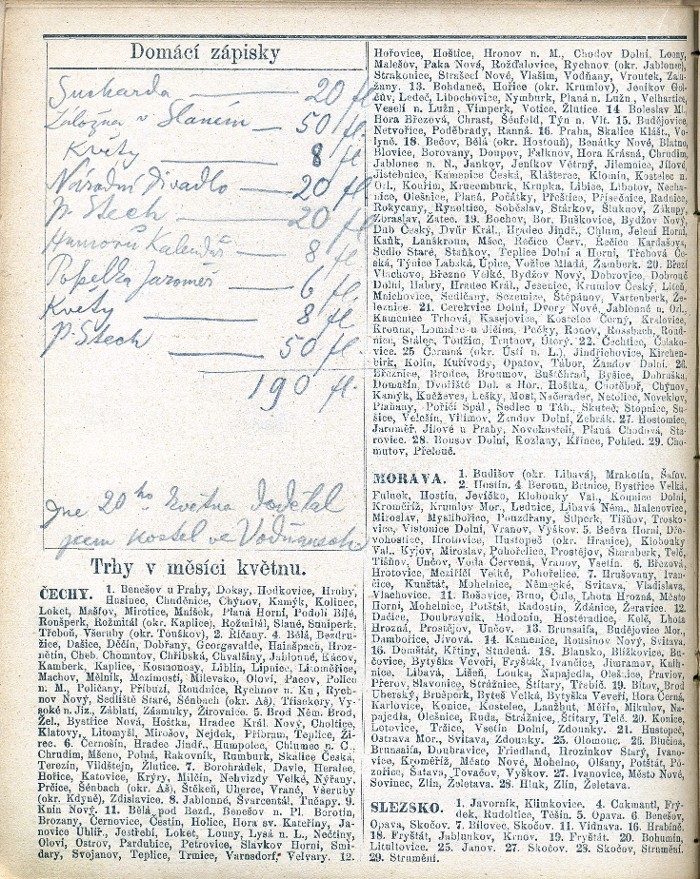 Domácí zápisky
Sucharda — 20 fl
Záložna v Slaném — 50 fl.
Květy — 8 fl
Národní divadlo — 20 fl
p. Stech — 20 fl.
Humorů Kalendář — 8 fl.
Popelka Jaroměř — 6 fl.
Květy — 8 fl.
p. Stech — 50 fl.
190 fl.
Dne 20ho května dodělal
jsem kostel ve Vodňanech
Trhy v měsíci květnu.
ČECHY. 1. Benešov u Prahy, Doksy, Hodkovice, Hroby,
Husinec, Chuděnice, Chýnov, Kamýk, Kolinec,
Loket, Mašťov, Mirotice, Planá Horní, Podolí Bílé,
Ronšperk, Rožmitál (okr. Kaplice), Rožmitál, Slané,
Třeboň, Všeruby (okr. Touškov). 2. Říčany. 4. Bělá, Bezdru-
žice, Dašice, Děčín, Dobřany, Georgswalde, Hainšpach, Hroz-
nětín, Cheb, Chomutov, Chřibská, Chvalšiny, Jablonné, Kácov,
Kamberk, Kaplice, Kosmonosy, Liblín, Lipnice, Litoměřice,
Machov, Mělník, Mezimostí, Milevsko, Oloví, Pacov, Police
n. M., Poličany, Příbuzí, Roudnice, Rychnov n. Kn., Rych-
nov Nový, Sedliště Staré, Šénbach (okr. Aš), Třísekory, Vy-
soké n. Jiz., Záblatí, Zásmuky, Žírovnice. 5. Brod Něm. Brod,
Žel., Bystřice Nová, Hoštka, Hradec Král. Nový, Choltice,
Klatovy, Litomyšl, Mirošov, Nejdek, Příbram, Teplice, Ži-
rec. 6. Černošín, Hradec Jindř., Humpolec, Chlumec n. C.,
Chrudim, Mšeno, Polná, Rakovník, Rumburk, Skalice Česká,
Terezín, Vidštejn, Žlutice. 7. Borohrádek, Davle, Heralec,
Hořice, Katovice, Krýry, Milčín, Nehvizdy Velké, Nýřany,
Prčice, Šénbach (okr. Aš), Štěkeň, Uherce, Vrané, Všeruby
(okr. Kdyně), Zdislavice. 8. Jablonné, Švarcentál, Tučapy. 9.
Knín Nový. 11. Bělá pod Bezd., Benešov n. Pl. Borotín,
Brozany, Černovice, Čestín, Holice, Hora sv. Kateřiny, Ja-
novice Uhlíř., Jestřebí, Loket, Louny, Lysá n. L., Nečtiny,
Oloví, Ostrov, Pardubice, Petrovice, Slavkov Horní, Smi-
dary, Svojanov, Teplice, Trmice, Varnsdorf, Velvary. 12.
Hořovice, Hoštice, Hronov n. M., Chodov Dolní, Louny,
Malešov, Paka Nová, Rožďalovice, Rychnov (okr. Jablonec),
Strakonice, Strašecí Nové, Vlašim, Vodňany, Vroutek, Zau-
žany. 13. Bohdaneč, Hořice (okr. Krumlov), Jeníkov Gol-
čův, Ledeč, Libochovice, Nymburk, Planá n. Lužn., Velhartice,
Veselí n. Lužn., Vimperk, Votice, Žlutice. 14. Boleslav Ml.
Hora Březová, Chrast, Šénfeld, Týn n. Vlt. 15. Budějovice,
Netvořice, Poděbrady, Ranná. 16. Praha, Skalice Klášt., Vo-
lyně. 18. Bečov, Bělá (okr. Hostouň), Benátky Nové, Blatno,
Blovice, Borovany, Doupov, Falknov, Hora Krásná, Chrudim,
Jablonec n. N., Jankov, Jeníkov Větrný, Jilemnice, Jílové,
Jistebnice, Kamenice Česká, Klášterec, Klomín, Kostelec n.
Orl., Kouřim, Krucemburk, Krupka, Libice, Libotov, Necha-
nice, Olešnice, Planá, Počátky, Přeštice, Přísečnice, Radnice,
Rokycany, Rynoltice, Soběslav, Stárkov, Šluknov, Zákupy,
Zoraslav, Žatec. 19. Bochov, Bor, Buškovice, Bydžov Nový,
Dub Český, Dvůr Král., Hradec Jindř., Chlum, Jelení Horní,
Kaňk, Lanškroun, Mšec, Rečice Červ., Rečice Kardašova,
Sedlo Staré, Staňkov, Teplice Dolní a Horní, Třebová Če-
ská, Týnice Labská, Úpice, Vožice Mladá, Žamberk. 20. Březí
Vlachovo, Březno Velké, Bydžov Nový, Dobrovice, Dobrouč
Dolní, Habry, Hradec Král., Jesenice, Krumlov Český, Liteň,
Mnichovice, Sedlčany, Sezemice, Štěpánov, Vartenberk, Že-
leznice. 21. Cerekvice Dolní, Dvory Nové, Jablonné n. Orl.,
Kamenec Trhová, Kasejovice, Kostelec Černý, Královice,
Krouna, Lomnice u Jičína, Pečky, Ronov, Rossbach, Roud-
nice, Stálec, Toužim, Trutnov, Úterý. 22. Čechtice, Čelako-
vice. 25 Čermná (okr. Ústí n. L.), Jindřichovice, Kirchen-
birk, Kolín, Kuřívody, Opatov, Tábor, Žandov Dolní. 26.
Březnice, Brodce, Broumov, Buštěhrad, Byšice, Dobruška,
Domažín, Dvoliště Dol. a Hor., Hoštka, Chotěboř, Chýnov,
Kamýk, Kněževes, Lešky, Most, Načeradec, Netolice, Neveklov,
Plaňany, Poříčí Spál., Sedlec u Táb., Skuteč, Stopnice, Su-
šice, Velešín, Vilímov, Žandov Dolní, Žebrák. 27. Hostomice,
Jaroměř, Jílové u Prahy, Novokostelí, Planá Chodová, Sta-
rovice. 28. Bousov Dolní, Kozlany, Křinec, Pohled. 29. Cho-
mutov, Přelouč.
MORAVA. 1. Budišov (okr. Libavá), Mrákotín, Šafov.
2. Hostín. 4 Beroun, Brtnice, Bystřice Velká,
Fulnek, Hostín, Jevíčko, Klobouky Val., Kounice Dolní,
Kroměříž, Krumlov Mor., Lednice, Libavá Něm., Malenovice,
Miroslav, Myslibořice, Pouzdřany, Šilperk, Tišňov, Trosko-
vice, Vistonice Dolní, Vranov, Výškov. 5. Bečva Horní, Dře-
vohostice, Hrotovice, Hustopeč (okr. Hranice), Klobouky
Val., Kyjov, Miroslav, Pohořelice, Prostějov, Šternberk, Telč,
Tišňov, Unčov, Voda Červená, Vranov, Vsetín. 6. Březová,
Hrotovice, Meziříčí Velké, Pohořelice. 7. Hrušovany, Ivan-
čice, Kunštát, Mohelnice, Německé, Svitava, Vladislava,
Vlachovice. 11. Bošovice, Brno, Čale, Lhota Hrozná, Město
Horní, Mohelnice, Potštát, Radostín, Ždánice, Žeravice. 12.
Dačice, Doubravník, Hodonín, Hostěradice, Kelč, Lhota
Hrozná, Prostějov, Unčov. 13. Brumsatia, Budějovice Mor.,
Dambořice, Jívová. 14. Kamenice, Rousínov Nový, Svitava.
16. Domštát, Křtiny, Studená. 18. Blansko, Blížkovice, Bu-
čovice, Bytyška Veveří, Fryšták, Ivančice, Jimramov, Kelh-
nice, Libavá, Líšeň, Louka, Napajedla, Olešnice, Pravlov,
Přerov, Slavonice, Strážnice, Štítary, Třebíč. 19. Bítov, Brod
Uherský, Brušperk, Byteš Velká, Bytyška Veveří, Hora Černá,
Karlovice, Konice, Kostelec, Lanžhut, Měřín, Mikulov, Na-
pajedla, Olešnice, Ruda, Strážnice, Štítary, Telč. 20. Konice,
Lotovice, Tršice, Vsetín Dolní, Zdounky. 21. Hustopeč,
Ostrava Mor., Svitava, Zdounky. 25. Olomouc. 26 Blučina,
Brunsatia, Doubravice, Friedland, Hrozínkov Starý, Ivano-
vice, Kroměříž, Město Nové, Mohelno, Olšany, Potštát, Po-
zořice, Šatava, Tovačov, Vyškov. 27. Ivanovice, Město Nové,
Sovinec, Zlín, Želetava. 28. Hluk, Zlín, Želetava.
SLEZSKO. 1. Javorník, Klimkovice. 4. Cukmantl, Frý-
dek, Rudoltice, Těšín. 5. Opava. 6. Benešov,
Opava, Skočov. 7. Bílovec, Skočov. 11. Vidnava. 16. Hrabině.
18. Fryštát, Jablunkov, Krnov. 19. Fryštát. 20. Bohumín,
Litultovice. 25. Janov. 27. Skočov. 28. Skočov, Strumění.
29. Strumění.